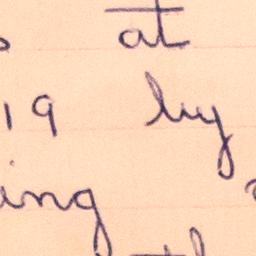 at
19 by
ing